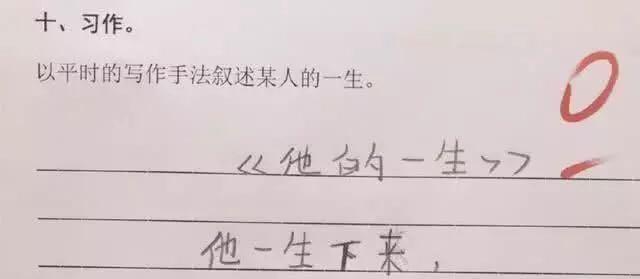 十、习作。
以平时的写作手法叙述某人的一生。
0
《他的一生》
他一生下来，